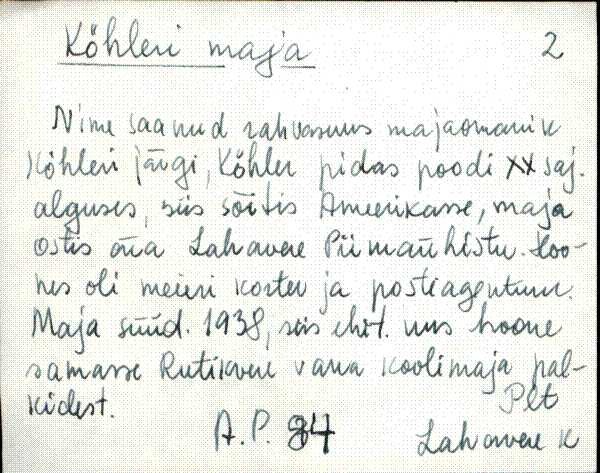 Köhleri maja 2
Nime saanud rahvasuus majaomanik
Köhleri järgi, Köhler pidas poodi XX saj.
alguses, siis sõitis Ameerikasse, maja
ostis ära Lahavere Piimaühistu. Hoo-
nes oli meieri korter ja postiagentuur.
Maja süüd. 1938, siis ehit. uus hoone
samasse Rutikvere vana koolimaja pal-
kidest. Plt
A.P. 84 Lahavere k